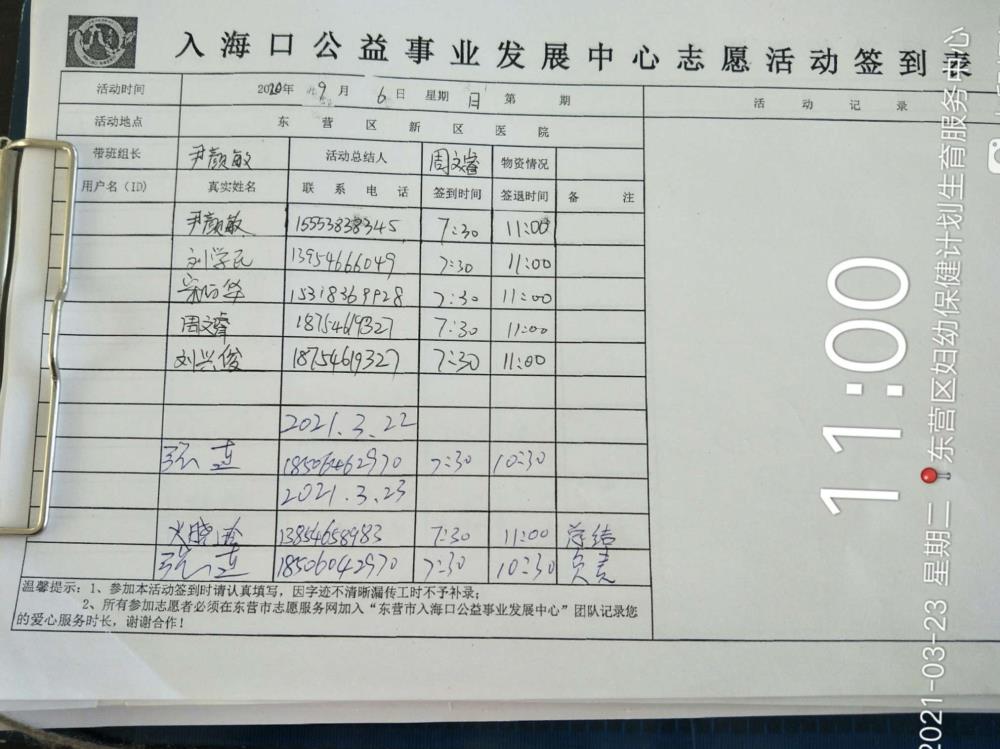 入海口公益事业发展中心志愿活动签到表
活动时间 2020年 9 月 6 日 星期 日 第 期 活动记录
活动地点 东营区新区医院
带班组长 尹颜敏 活动总结人 周文睿 物资情况
用户名（ID） 真实姓名 联系电话 签到时间 签退时间 备注
尹颜敏 15553838345 7:30 11:00
刘学民 13954666049 7:30 11:00
15318369928 7:30 11:00
周文睿 18754619327 7:30 11:00
刘兴俊 18754619327 7:30 11:00
2021.3.22
张莲 18506462970 7:30 10:30
2021.3.23
13854658983 7:30 11:00 总结
张莲 18506042970 7:30 10:30 负责
温馨提示：1、参加本活动签到时请认真填写，因字迹不清晰漏传工时不予补录；
2、所有参加志愿者必须在东营市志愿服务网加入“东营市入海口公益事业发展中心”团队记录您
的爱心服务时长，谢谢合作！
11:00
2021-03-23 星期二 东营区妇幼保健计划生育服务中心